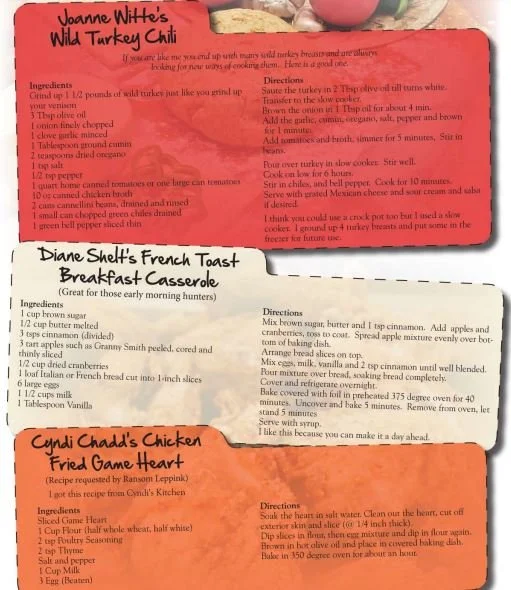 Joanne Witte's
Wild Turkey Chili
If you are like me you end up with many wild turkey breasts and are always
looking for new ways of cooking them. Here is a good one.
Ingredients
Grind up 1 1/2 pounds of wild turkey just like you grind up
your venison
3 Tbsp olive oil
1 onion finely chopped
1 clove garlic minced
1 Tablespoon ground cumin
2 teaspoons dried oregano
1 tsp salt
1/2 tsp pepper
1 quart home canned tomatoes or one large can tomatoes
10 oz canned chicken broth
2 cans cannellini beans, drained and rinsed
1 small can chopped green chiles drained
1 green bell pepper sliced thin
Directions
Saute the turkey in 2 Tbsp olive oil till turns white.
Transfer to the slow cooker.
Brown the onion in 1 Tbsp oil for about 4 min.
Add the garlic, cumin, oregano, salt, pepper and brown
for 1 minute.
Add tomatoes and broth, simmer for 5 minutes. Stir in
beans.
Pour over turkey in slow cooker. Stir well.
Cook on low for 6 hours.
Stir in chiles, and bell pepper. Cook for 10 minutes.
Serve with grated Mexican cheese and sour cream and salsa
if desired.
I think you could use a crock pot too but I used a slow
cooker. I ground up 4 turkey breasts and put some in the
freezer for future use.
Diane Shelt's French Toast
Breakfast Casserole
(Great for those early morning hunters)
Ingredients
1 cup brown sugar
1/2 cup butter melted
3 tsps cinnamon (divided)
3 tart apples such as Granny Smith peeled, cored and
thinly sliced
1/2 cup dried cranberries
1 loaf Italian or French bread cut into 1-inch slices
6 large eggs
1 1/2 cups milk
1 Tablespoon Vanilla
Directions
Mix brown sugar, butter and 1 tsp cinnamon. Add apples and
cranberries, toss to coat. Spread apple mixture evenly over bot-
tom of baking dish.
Arrange bread slices on top.
Mix eggs, milk, vanilla and 2 tsp cinnamon until well blended.
Pour mixture over bread, soaking bread completely.
Cover and refrigerate overnight.
Bake covered with foil in preheated 375 degree oven for 40
minutes. Uncover and bake 5 minutes. Remove from oven, let
stand 5 minutes
Serve with syrup.
I like this because you can make it a day ahead.
Cyndi Chadd's Chicken
Fried Game Heart
(Recipe requested by Ransom Leppink)
I got this recipe from Cyndi's Kitchen
Ingredients
Sliced Game Heart
1 Cup Flour (half whole wheat, half white)
2 tsp Poultry Seasoning
2 tsp Thyme
Salt and pepper
1 Cup Milk
3 Egg (Beaten)
Directions
Soak the heart in salt water. Clean out the heart, cut off
exterior skin and slice (@ 1/4 inch thick).
Dip slices in flour, then egg mixture and dip in flour again.
Brown in hot olive oil and place in covered baking dish.
Bake in 350 degree oven for about an hour.